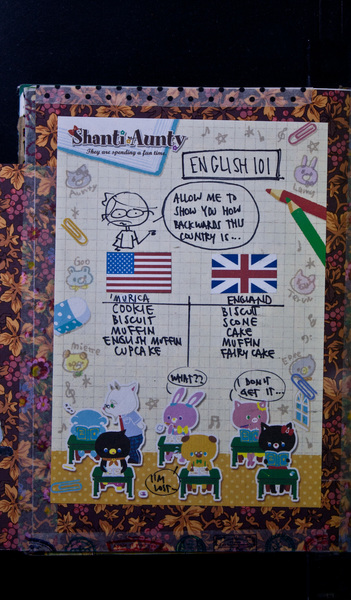 Shanti Aunty
They are spending a fun time.
ENGLISH 101
ALLOW ME TO
SHOW YOU HOW
BACKWARDS THIS
COUNTRY IS...
'MURICA
COOKIE
BISCUIT
MUFFIN
ENGLISH MUFFIN
CUPCAKE
ENGLAND
BISCUIT
SCONE
CAKE
MUFFIN
FAIRY CAKE
WHAT??
I DON'T
GET IT...
I'M
LOST